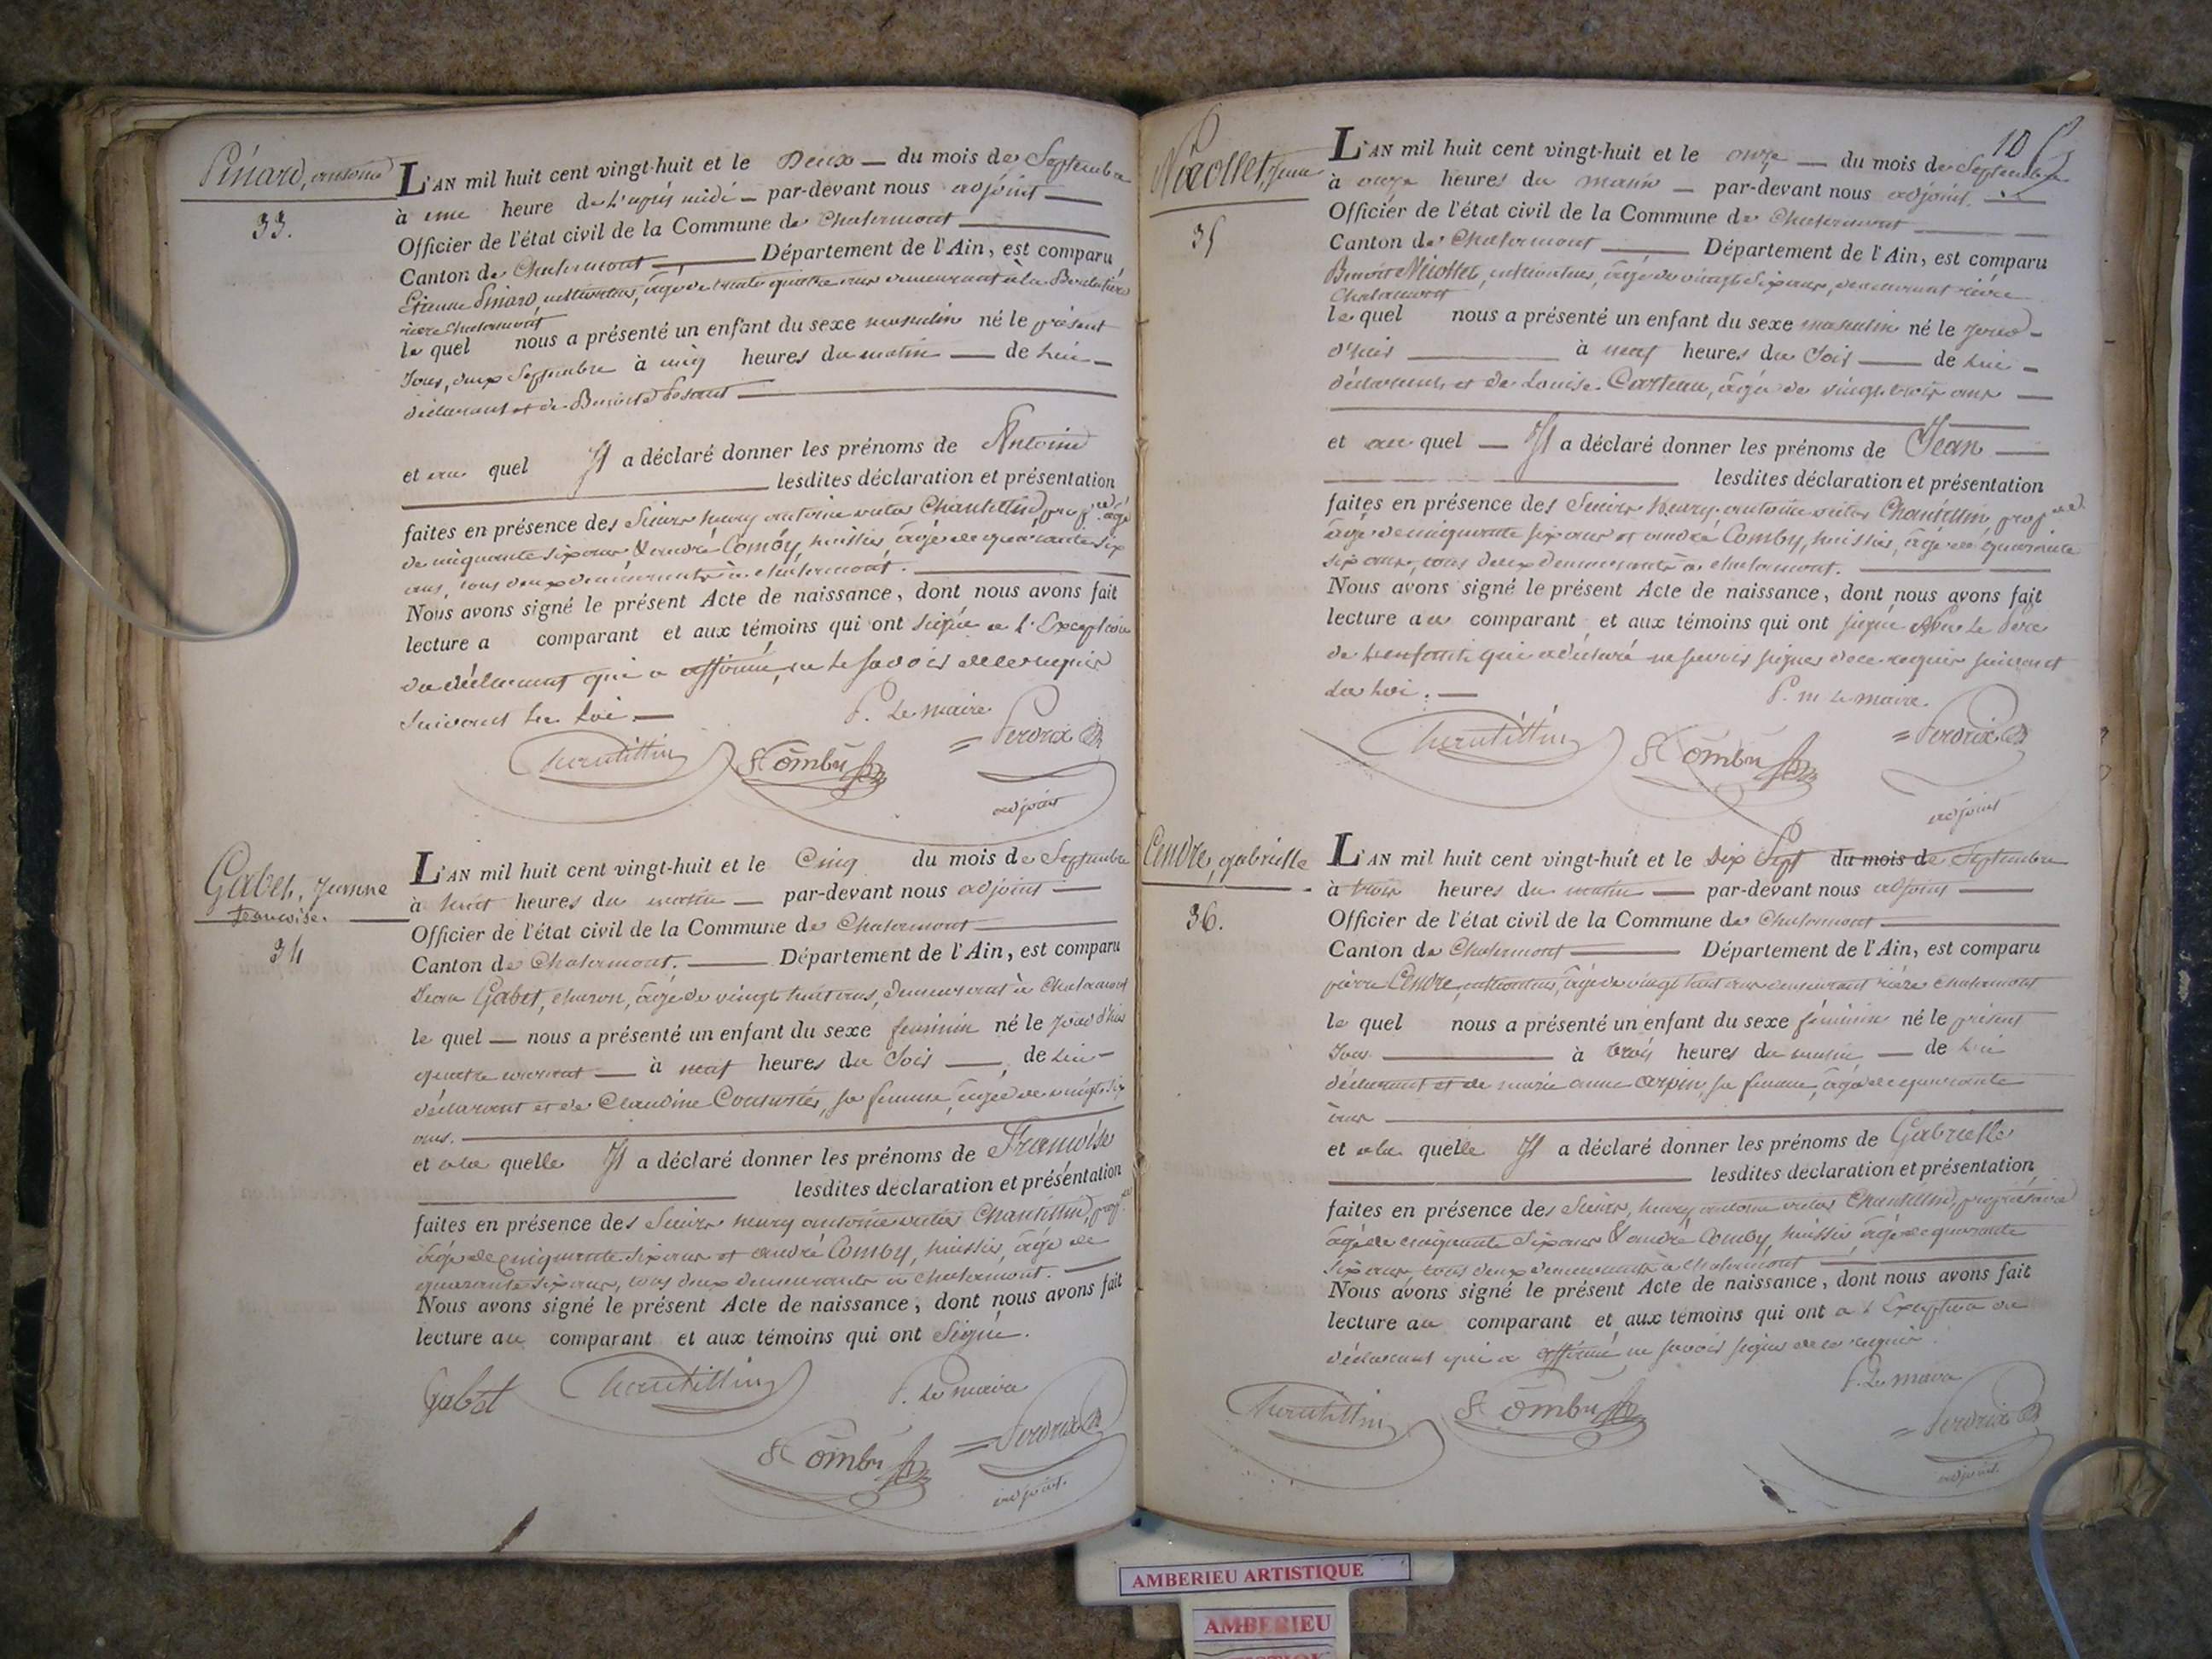 Pinard, antoine
33.
L'AN mil huit cent vingt-huit et le Deux — du mois de Septembre
à une heure de L'après midi — par-devant nous adjoint —
Officier de l'état civil de la Commune de Chalamont —
Canton de Chalamont — Département de l'Ain, est comparu
Etienne Pinard, cultivateur, âgé de trente quatre ans demeurant à la
rière Chalamont
le quel nous a présenté un enfant du sexe masculin né le présent
Jour, deux Septembre à cinq heures du matin — de Lui —
déclarant et de Benoite
et au quel Il a déclaré donner les prénoms de Antoine
lesdites déclaration et présentation
faites en présence des Sieurs henry antoine victor Chantillin, prop.re âgé
de cinquante six ans & andré Comby, huissier âgé de quarante six
ans, tous deux demeurants à Chalamont.
Nous avons signé le présent Acte de naissance, dont nous avons fait
lecture a comparant et aux témoins qui ont signé a L'Exception
du déclarant qui a affirmé ne le savoir de ce requis
suivant La Loi. —
P. Le maire
Chantillin Comby = Perdrix
adjoint
Gabet, Jeanne
francoise.
34
L'AN mil huit cent vingt-huit et le Cinq du mois de Septembre
à huit heures du matin — par-devant nous adjoint —
Officier de l'état civil de la Commune de Chalamont —
Canton de Chalamont. — Département de l'Ain, est comparu
Jean Gabet, charon, âgé de vingt huit ans, demeurant à Chalamont
le quel — nous a présenté un enfant du sexe feminin né le Jour d'hier
quatre courant — à neuf heures du Soir — de Lui —
déclarant et de Claudine sa femme, âgée de vingt six
ans. —
et a la quelle Il a déclaré donner les prénoms de Francoise
lesdites déclaration et présentation
faites en présence des Sieurs henry antoine victor Chantillin, prop.re
âgé de Cinquante six ans et andré Comby, huissier, âgé de
quarante six ans, tous deux demeurants à Chalamont. —
Nous avons signé le présent Acte de naissance, dont nous avons fait
lecture au comparant et aux témoins qui ont Signé.
Gabet Chantillin P. Le maire
Comby = Perdrix
adjoint.
10
Nicollet, Jean
35
L'AN mil huit cent vingt-huit et le onze — du mois de Septembre
à onze heures du matin — par-devant nous adjoint. —
Officier de l'état civil de la Commune de Chalamont —
Canton de Chalamont — Département de l'Ain, est comparu
Benoit Nicollet, cultivateur, âgé de vingt six ans, demeurant rière
Chalamont
le quel nous a présenté un enfant du sexe masculin né le Jour —
d'hier — à neuf heures du Soir — de Lui —
déclarant et de Louise Carteau, âgée de vingt trois ans —
et au quel — Il a déclaré donner les prénoms de Jean —
lesdites déclaration et présentation
faites en présence des Sieurs henry antoine victor Chantillin, prop.re
âgé de cinquante six ans et andré Comby, huissier, âgé de quarante
six ans, tous deux demeurants à Chalamont. —
Nous avons signé le présent Acte de naissance, dont nous avons fait
lecture au comparant et aux témoins qui ont signé Le Père
de L'enfant qui a déclaré ne savoir signer de ce requis suivant
La Loi. —
P. m Le maire.
Chantillin Comby = Perdrix
adjoint
Cendre, gabrielle
36.
L'AN mil huit cent vingt-huit et le Dix Sept du mois de Septembre
à trois heures du matin — par-devant nous adjoint —
Officier de l'état civil de la Commune de Chalamont —
Canton de Chalamont — Département de l'Ain, est comparu
pierre Cendre, cultivateur, âgé de vingt huit ans demeurant rière Chalamont
le quel nous a présenté un enfant du sexe féminin né le présent
Jour — à trois heures du matin — de Lui
déclarant et de marie anne Carpin, sa femme, âgée de quarante
ans —
et a la quelle Il a déclaré donner les prénoms de Gabrielle
lesdites déclaration et présentation
faites en présence des Sieurs, henry antoine victor Chantillin, propriétaire
âgé de cinquante Six ans & andré Comby, huissier âgé de quarante
Six ans tous deux demeurants à Chalamont —
Nous avons signé le présent Acte de naissance, dont nous avons fait
lecture au comparant et aux témoins qui ont a L'Exception du
déclarant qui a affirmé ne savoir signer de ce requis.
P. Le maire
Chantillin Comby = Perdrix
adjoint.
AMBERIEU ARTISTIQUE
AMBERIEU